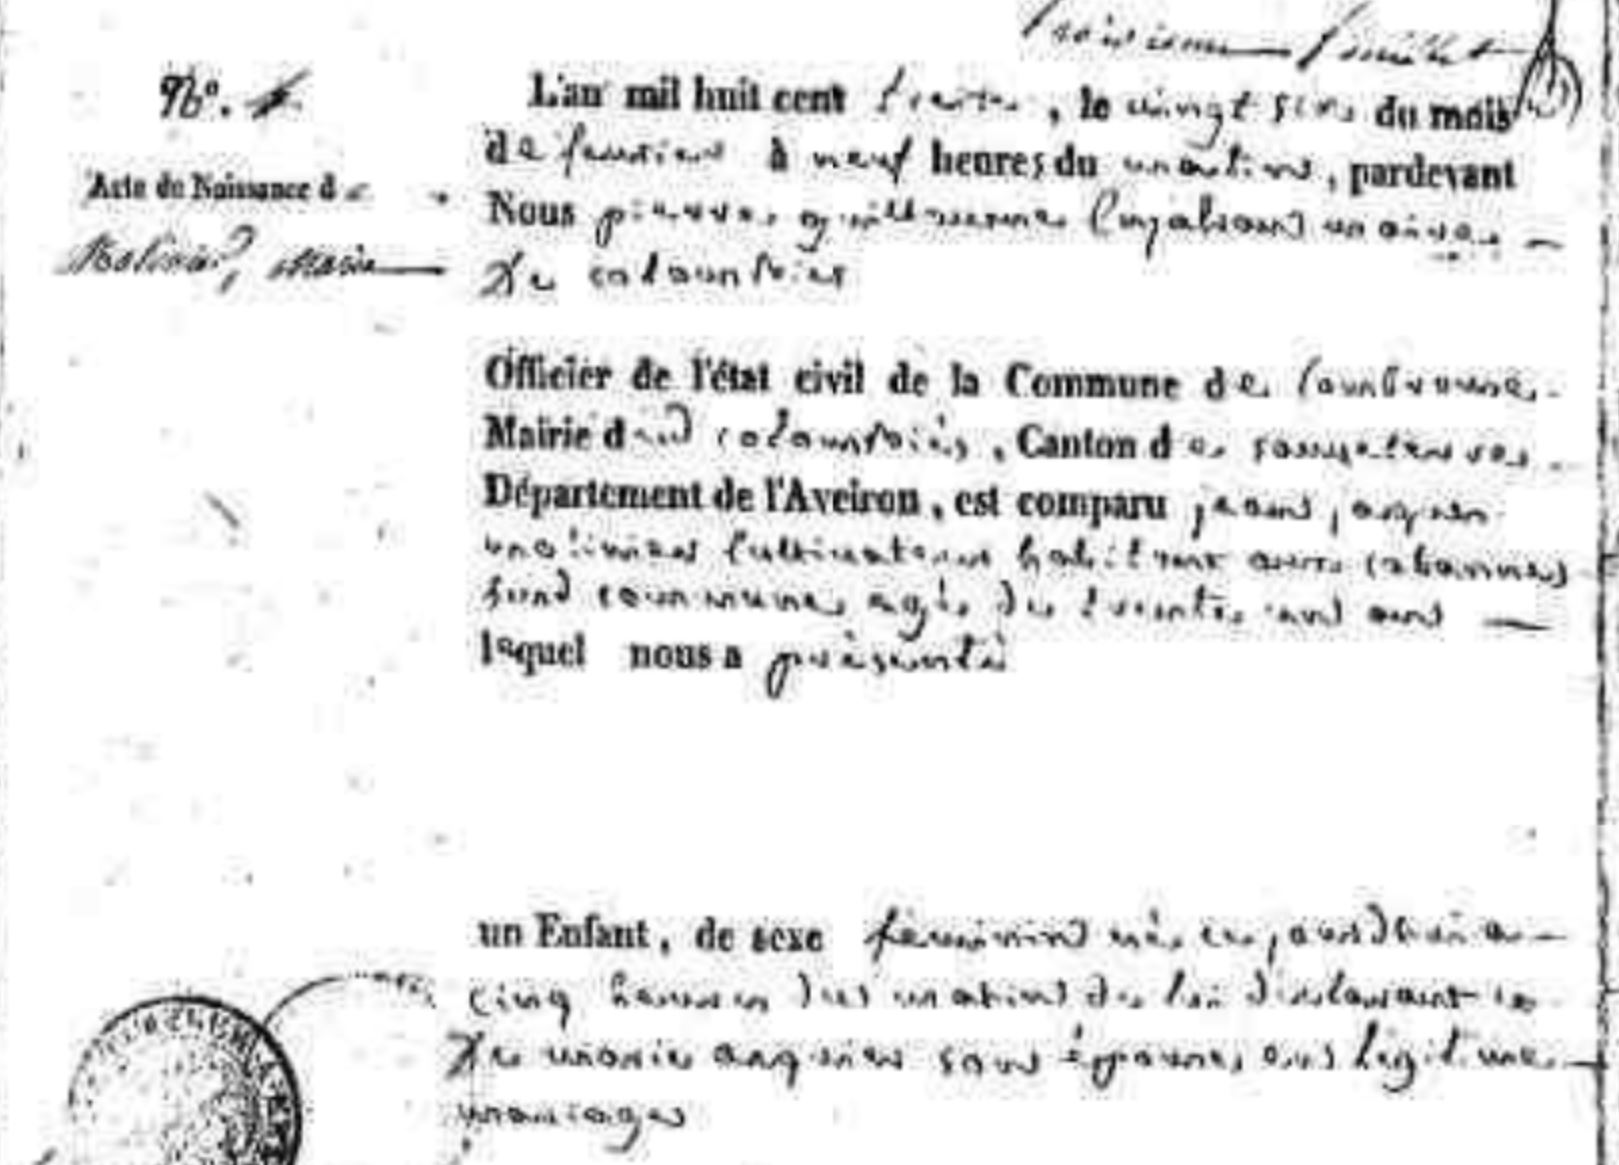 troisieme feuillet
N.º 4
L'an mil huit cent trente, le vingt six du mois
de feurier à neuf heures du matin, pardevant
Acte de Naissance de
Nous pierre guillaume maire
Molinié, Marie
de colombies
Officier de l'état civil de la Commune de
Mairie dud colombiès, Canton de sauveterre
Département de l'Aveiron, est comparu jean jaques
molinier Cultivateur habitant aux cabannes
sud commune agé de trente un ans
lequel nous a présenté
un Enfant, de sexe féminin né ce jourdhui a
cinq heures du matin de lui déclarant et
de marie son épouse en légitime
mariage